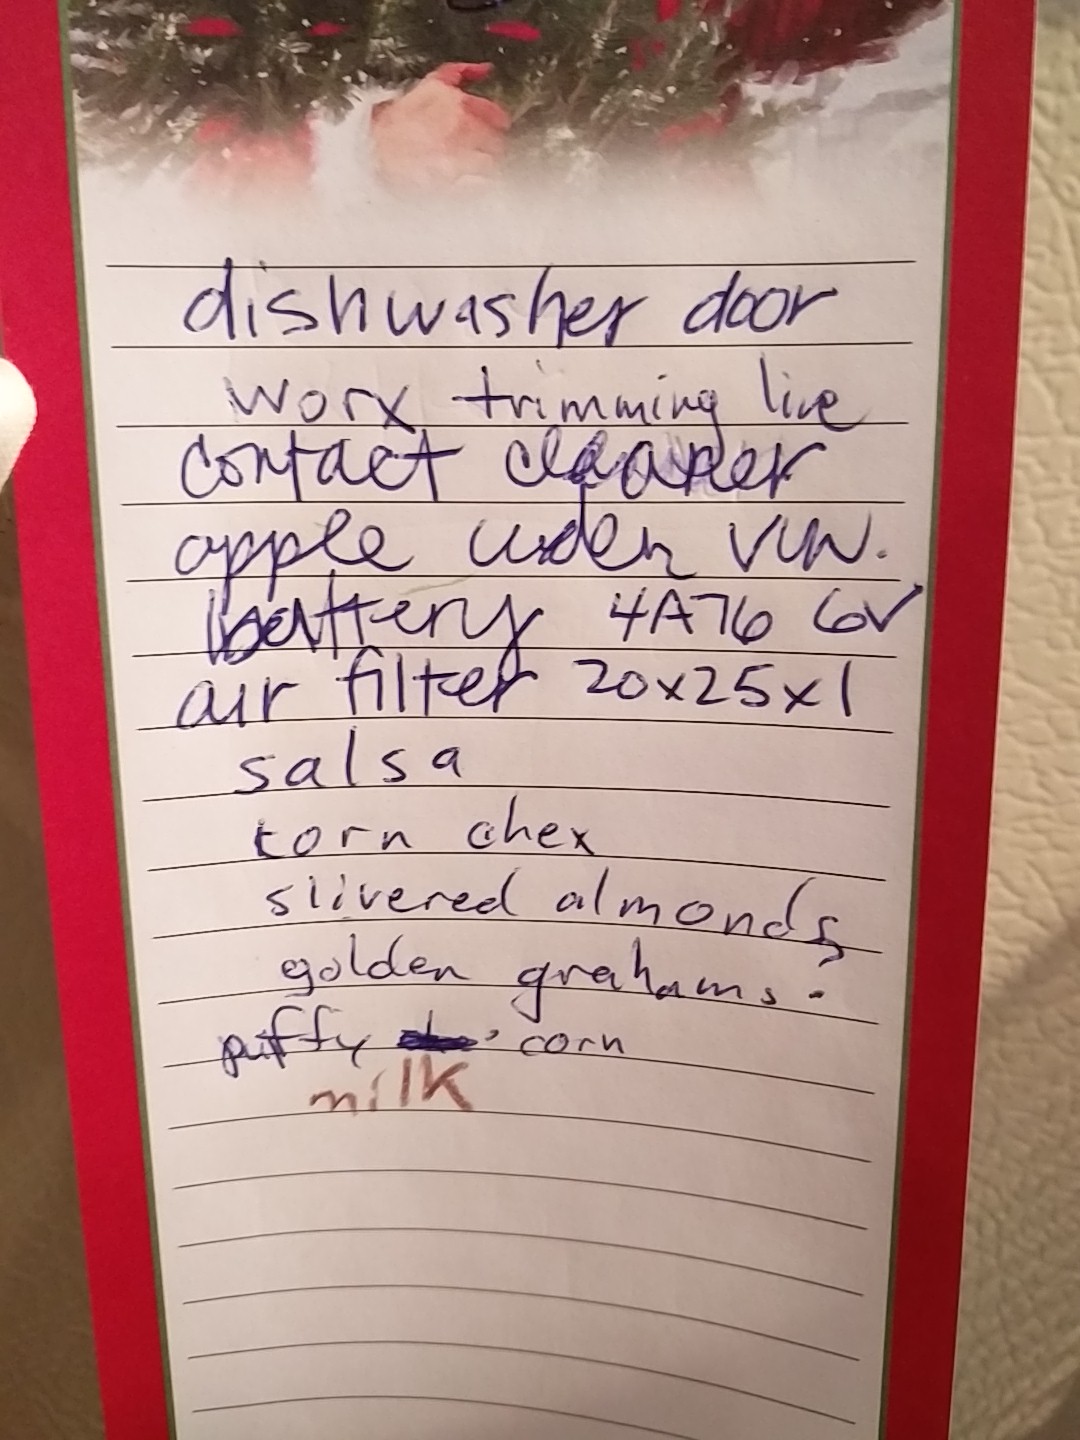 dishwasher door
worx trimming line
contact cleaner
apple
battery 4A76 6V
air filter 20x25x1
salsa
corn chex
slivered almonds
golden grahams.
puffy corn
milk